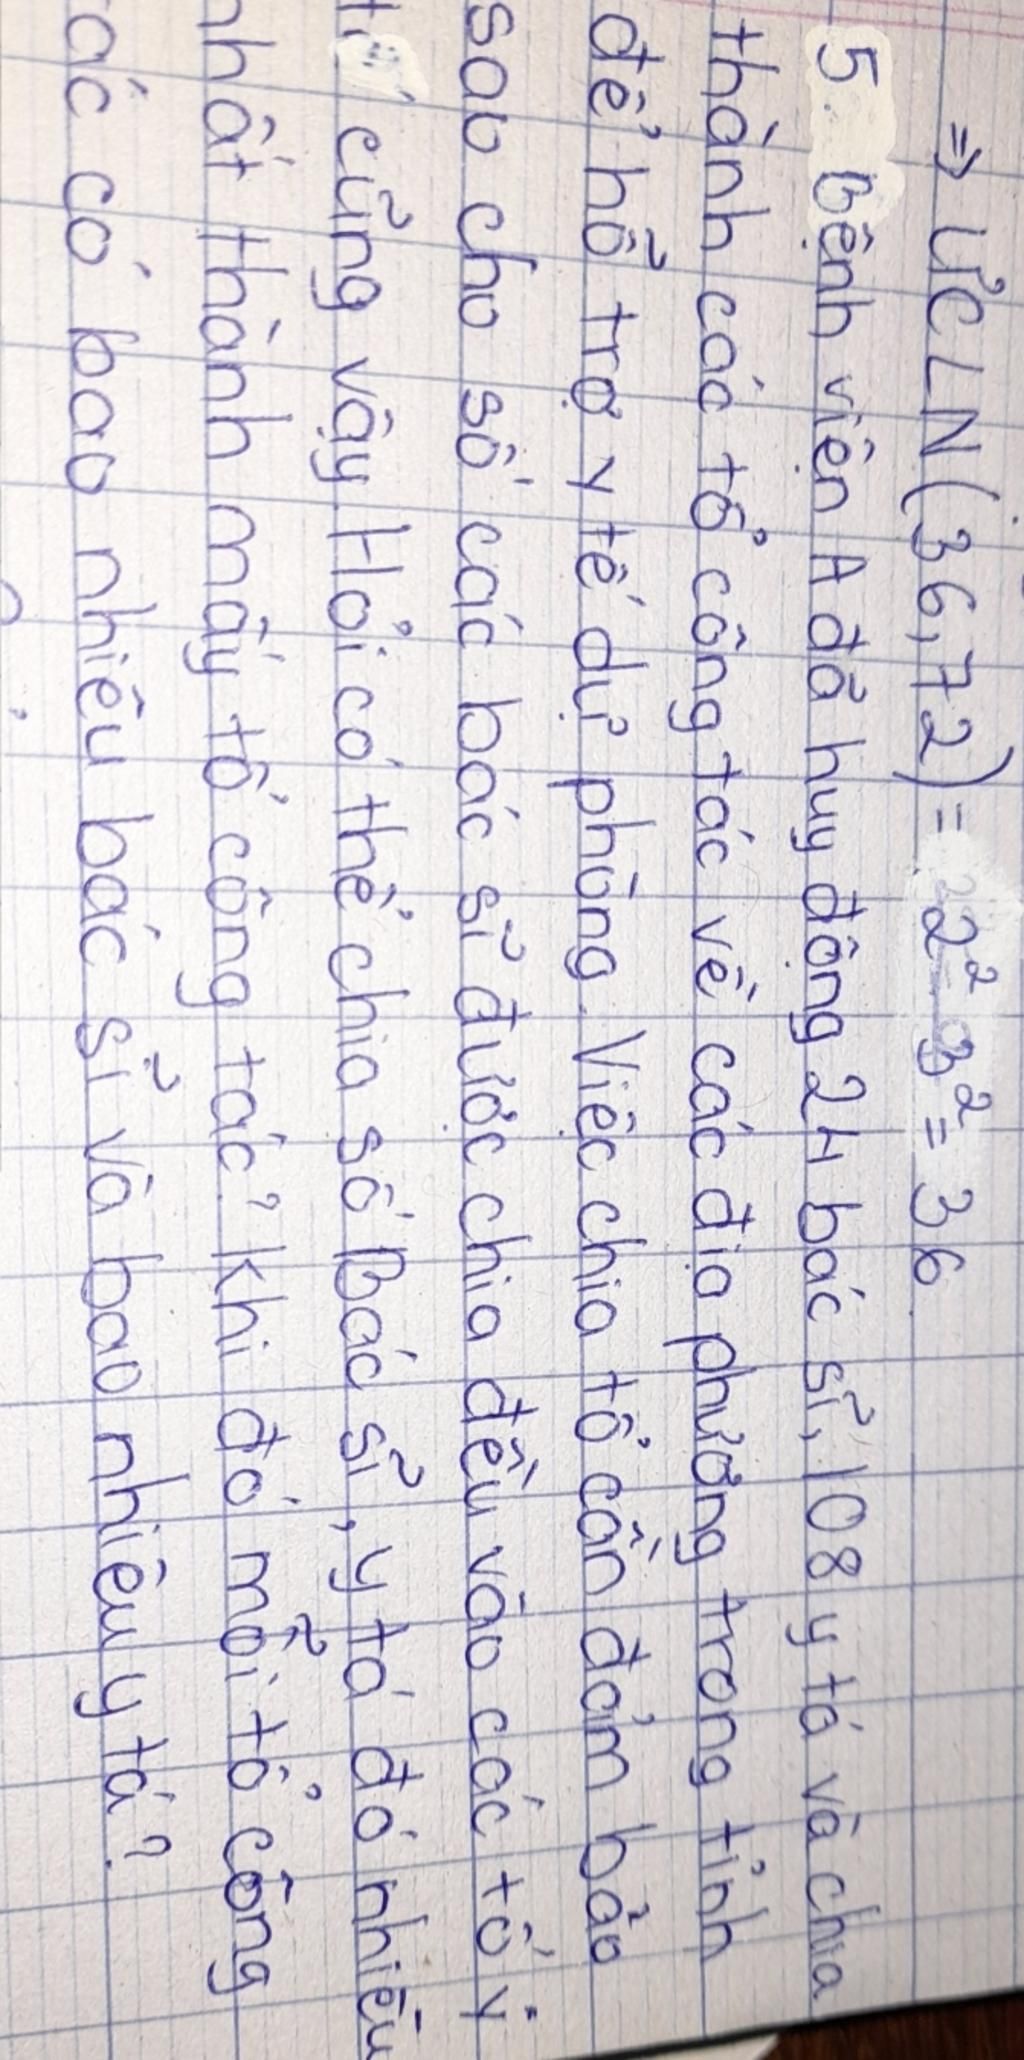 => ƯCLN(36,72) = 2² 3² = 36
5. Bệnh viện A đã huy động 24 bác sĩ, 108 y tá và chia
thành các tổ công tác về các địa phương trong tỉnh
để hỗ trợ y tế dự phòng. Việc chia tổ cần đảm bảo
sao cho số các bác sĩ được chia đều vào các tổ y
tá cũng vậy. Hỏi có thể chia số Bác sĩ, y tá đó nhiều
nhất thành mấy tổ công tác? Khi đó mỗi tổ công
tác có bao nhiêu bác sĩ và bao nhiêu y tá?